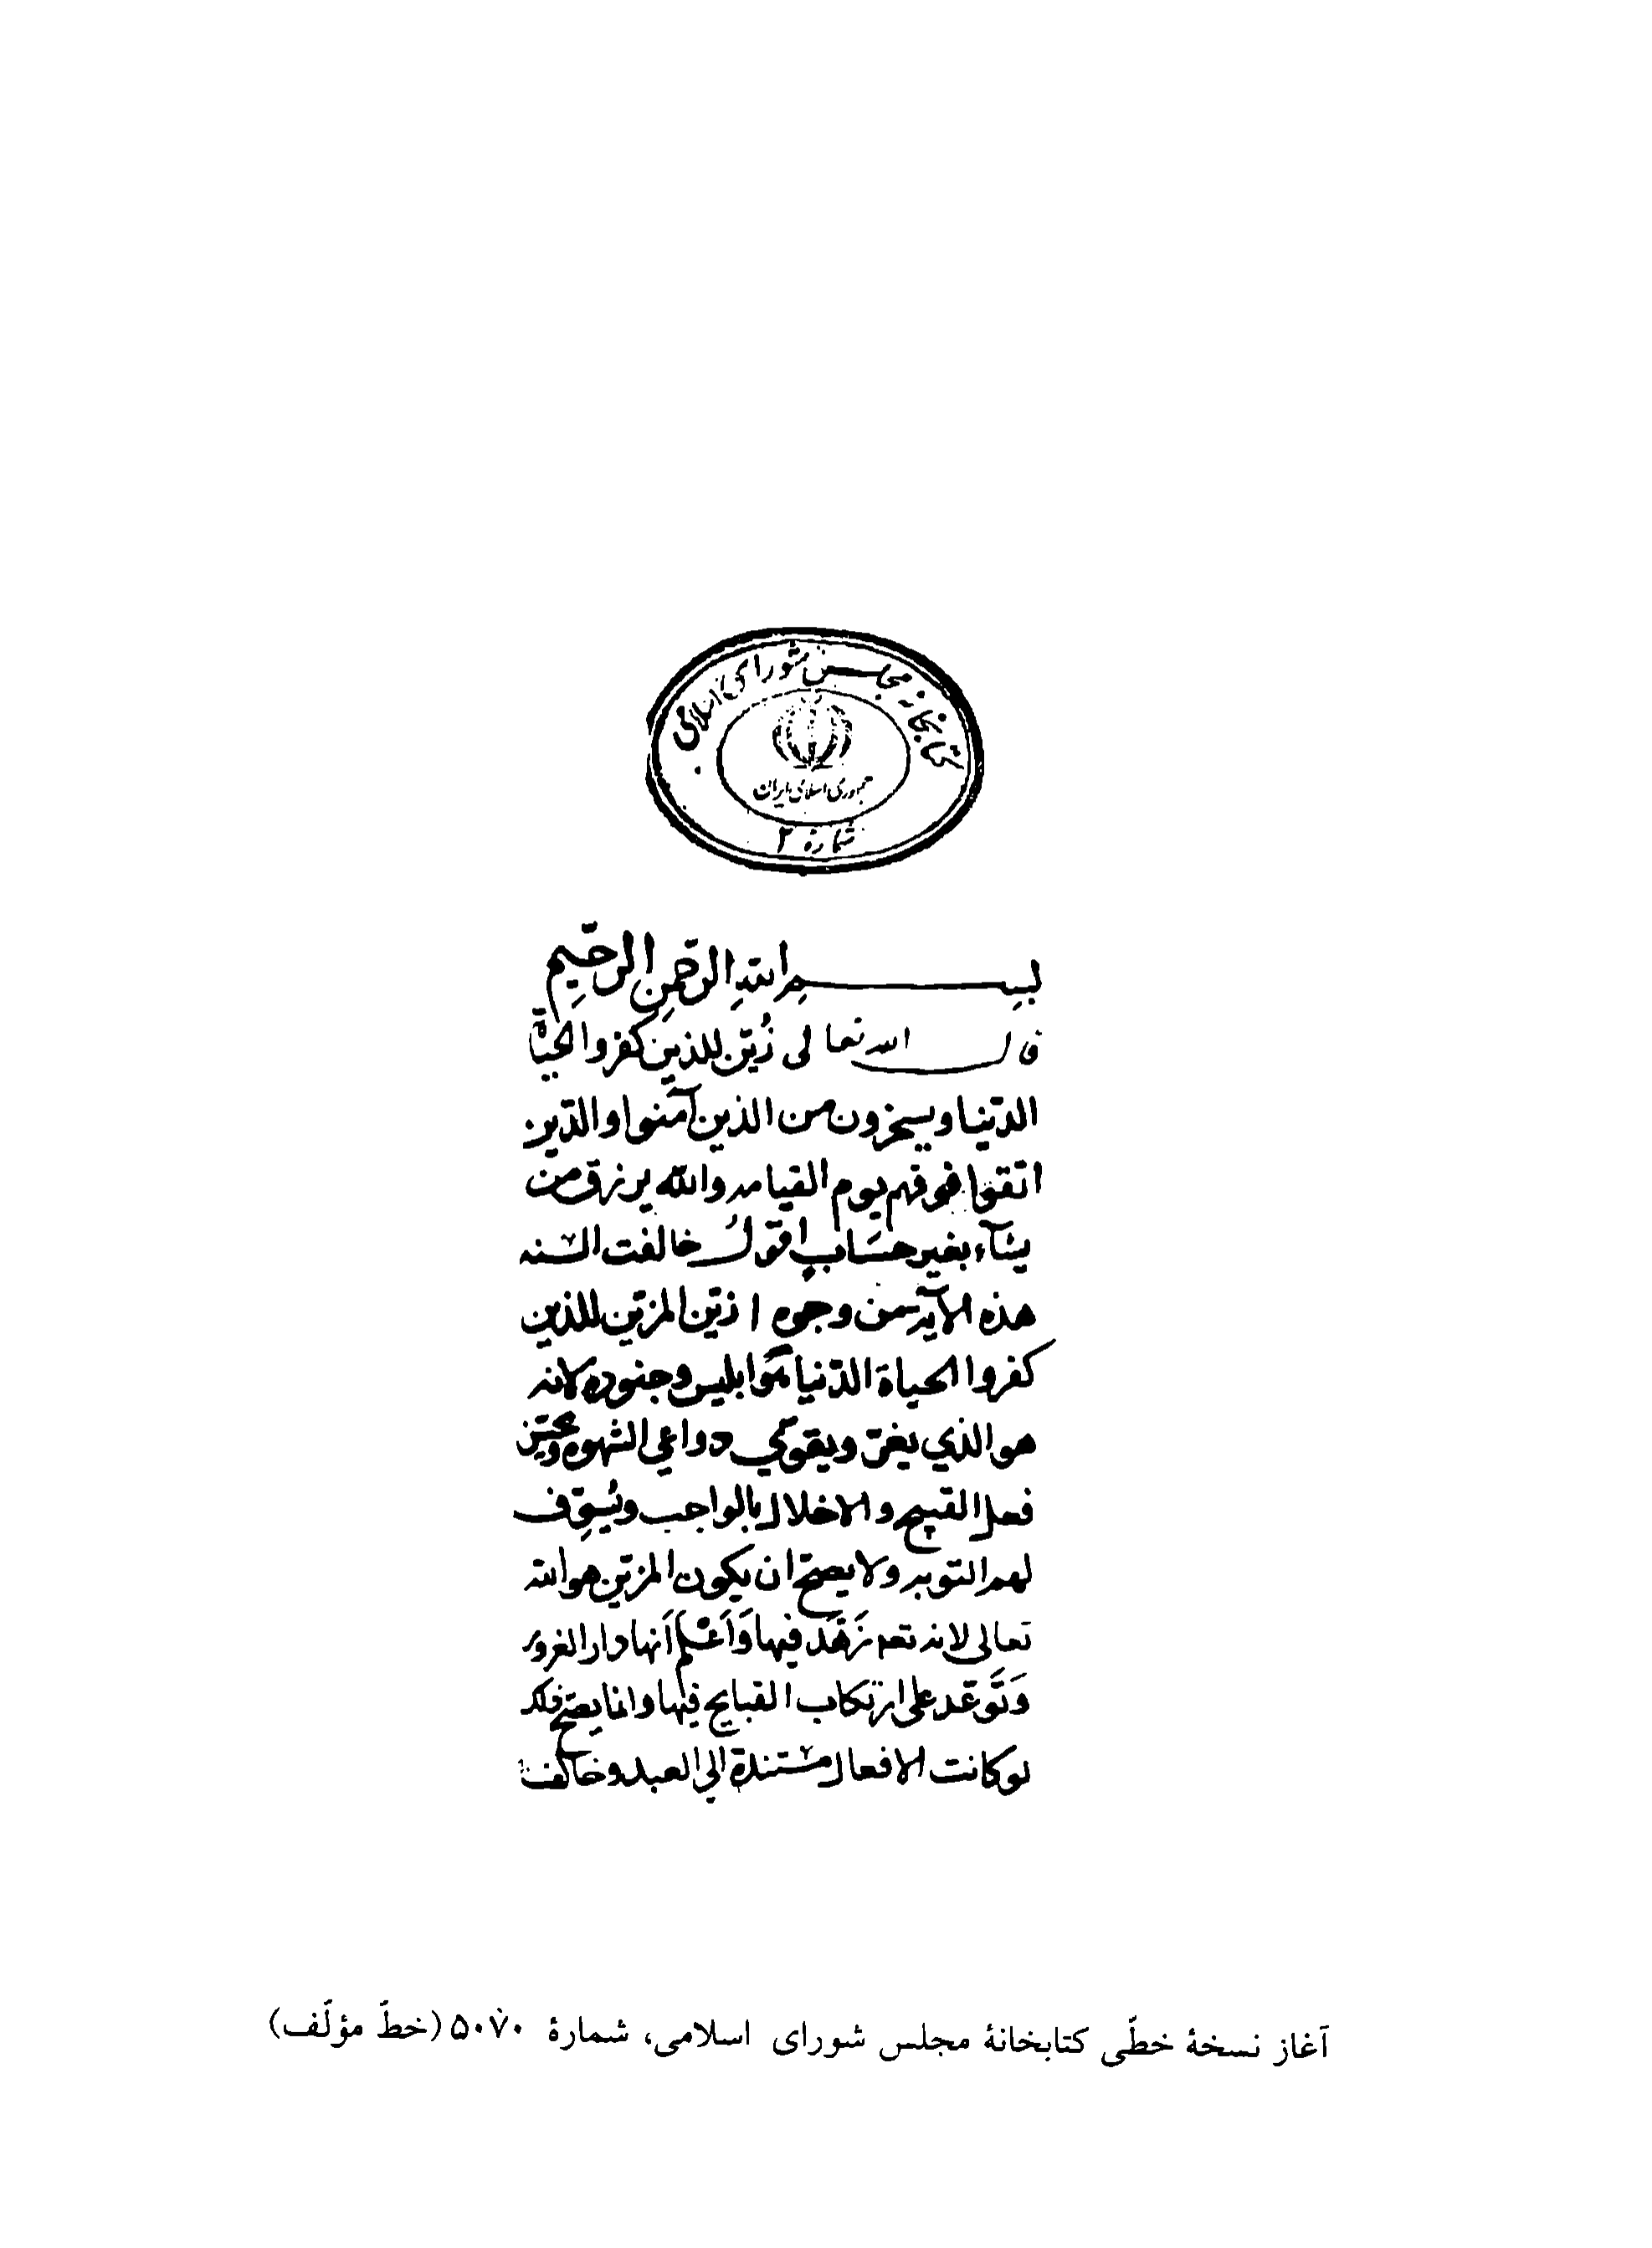 کتابخانه مجلس شورای اسلامی
جمهوری اسلامی ایران
شماره ۲
بسم الله الرحمن الرحیم
قال الله تعالی زُیّن للذین کفروا الحیاة
الدّنیا ویسخرون من الذین آمنوا والذین
اتقوا فوقهم یوم القیامه والله یرزق من
یشآء بغیر حسَابٍ اقولُ خالفت السنه
هذه الآیه من وجوه ا زیّن المزیّن للذین
کفروا الحیاة الدّنیا هُوَ ابلیس وجنوده لانه
هو الذی یغرّ ویقوّی دواعی الشهوه ویحسّن
فعل القبیح والاخلال بالواجب ویُسوِّف
لهم التوبه ولا یصحّ ان یکون المزیّن هو الله
تعالی لانه تعه زَهّدَ فیها وَاَعْلَم اَنها دار الغرور
وَتَوَعّد علی ارتکاب القبایح فیها وانما یصحّ ذلک
لو کانت الافعال مستندة الی العبد وخالفت
آغاز نسخهٔ خطّی کتابخانهٔ مجلس شورای اسلامی، شمارهٔ ۵۰۷۰ (خطّ مؤلّف)